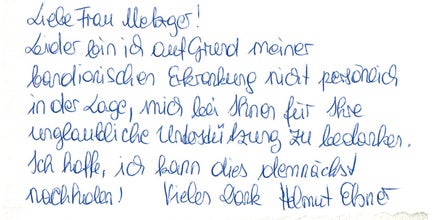 Liebe Frau Metzger!
Leider bin ich auf Grund meiner
bandionischen Erkrankung nicht persönlich
in der Lage, mich bei Ihnen für Ihre
unglaubliche Unterstützung zu bedanken.
Ich hoffe, ich kann dies demnächst
nachholen! Vielen Dank Helmut Ebner